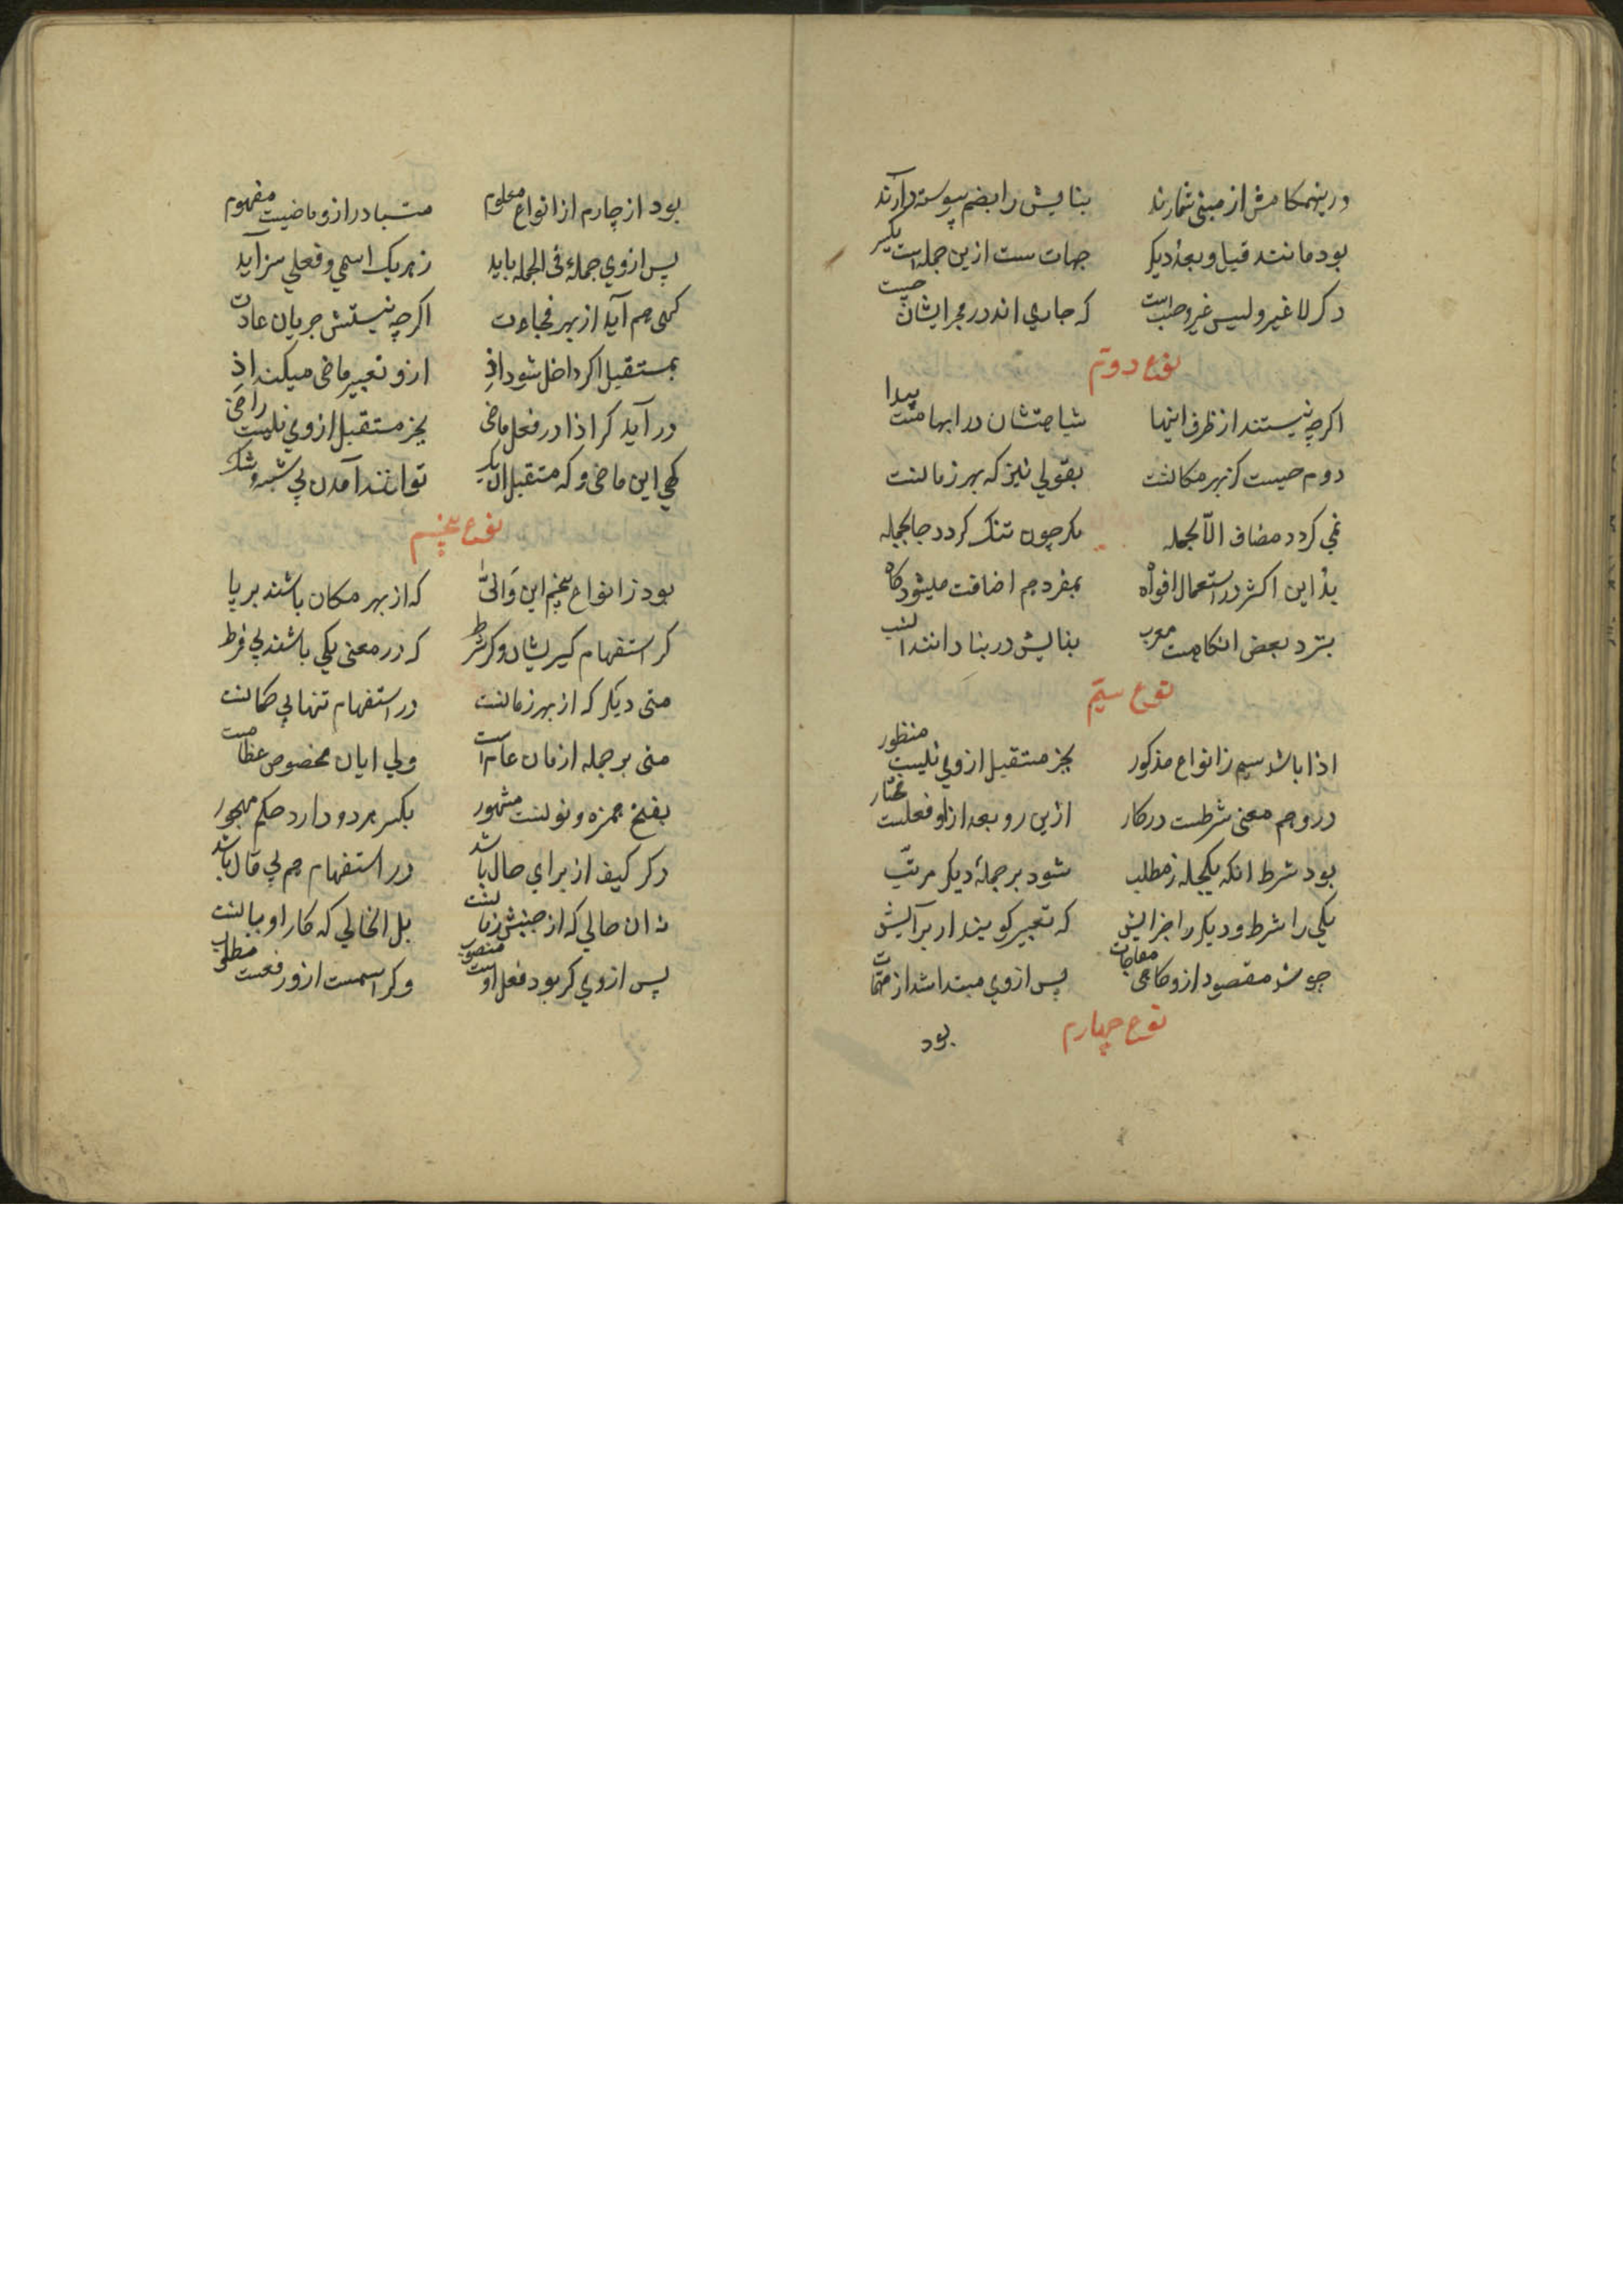 درینهنکامش از مبنی شمارند بنایش را بضم پیوسته دارند
بود مانند قبل و بعد دیکر جهات ست ازین جمله است یکسر
دکر لا غیر و لیس غیر و حسب است که جاری اندر مجرایشان
نوع دوم
اکرچه نیستند از ظرف اینها شباهتشان در ابهامست پیدا
دوم حیث کز بهر مکانست بقولی نیز که بهر زمانست
نمی کردد مضاف الا بجمله مکر چون تنک کردد جا بجمله
بذ این اکثر در استعمال افواه بمفرد هم اضافت میشود کاه
بنزد بعض انکاهست معرب بنایش در بنا دانند انسب
نوع سیم
اذا باشد سیم ز انواع مذکور بجز مستقبل از وی نیست منظور
درو هم معنی شرطست درکار ازین رو بعد ازو فعلست مختار
بود شرط انکه یکجمله ز مطلب شود بر جملهٔ دیکر مرتب
یکی را شرط و دیکر را جزایش که تعبیر کویند از برایش
چو شد مقصود ازو کاهی مفاجات پس از وی مبتدا شد از متمات
نوع چهارم
بود
بود اذ چارم از انواع معلوم متبادر ازو ماضیت مفهوم
پس از وی جملهٔ فی الجمله باید ز هر یک اسمی و فعلی سزاید
کهی هم آید از بهر فجاءت اکرچه نیستش جریان عادت
بمستقبل اکر داخل شود اذ ازو تعبیر ماضی میکند اذ
در آید کر اذا در فعل ماضی بجز مستقبل از وی نیست راضی
کهی این ماضی و که مستقبل ان یک توانند آمدن بی شبه و شک
نوع پنجم
بود ز انواع پنجم این و انّی که از بهر مکان باشند بر پا
کر استفهام کیریشان و کر شرط که در معنی یکی باشند بی فرط
متی دیکر که از بهر زمانست در استفهام تنهایی همانست
متی بر جمله ازمان عام است ولی ایان مخصوص عظامست
بفتح همزه و نونست مشهور بکسر هر دو دارد حکم مهجور
دکر کیف از برای حال باشد در استفهام هم بی قال باشد
نه ان حالی که از جنبش زمانست بل انحالی که کار او بیانست
پس از وی کر بود فعل اوست منصوب وکر اسمست ازو رفعست مطلوب